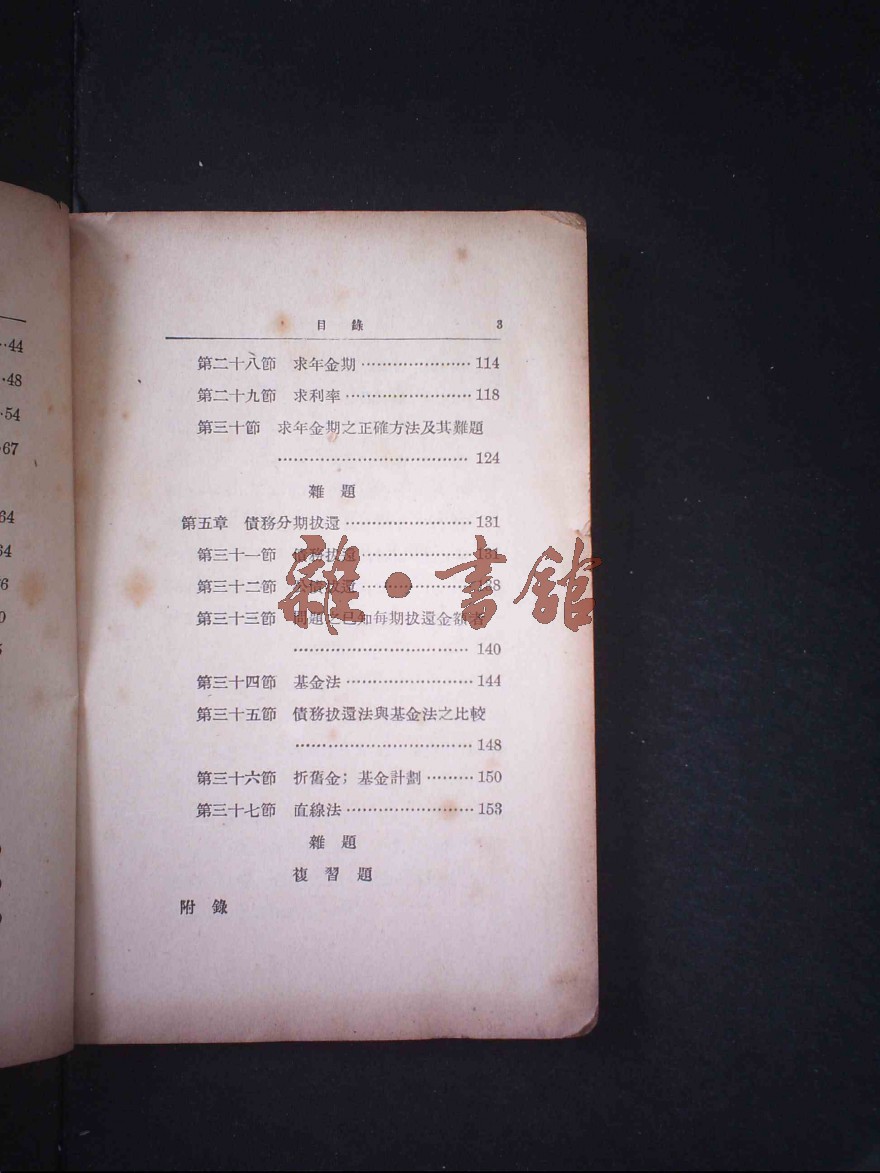 目錄 3
第二十八節 求年金期 ····················· 114
第二十九節 求利率 ························ 118
第三十節 求年金期之正確方法及其難題
···································· 124
雜題
第五章 債務分期拔還 ························ 131
第三十一節 債務拔還 ····················· 131
第三十二節 公債拔還
第三十三節 問題之已知每期拔還金額者
································· 140
第三十四節 基金法 ························ 144
第三十五節 債務拔還法與基金法之比較
································· 148
第三十六節 折舊金；基金計劃 ········· 150
第三十七節 直線法 ························ 153
雜題
複習題
附錄
雜·書館
··44
··48
··54
·67
64